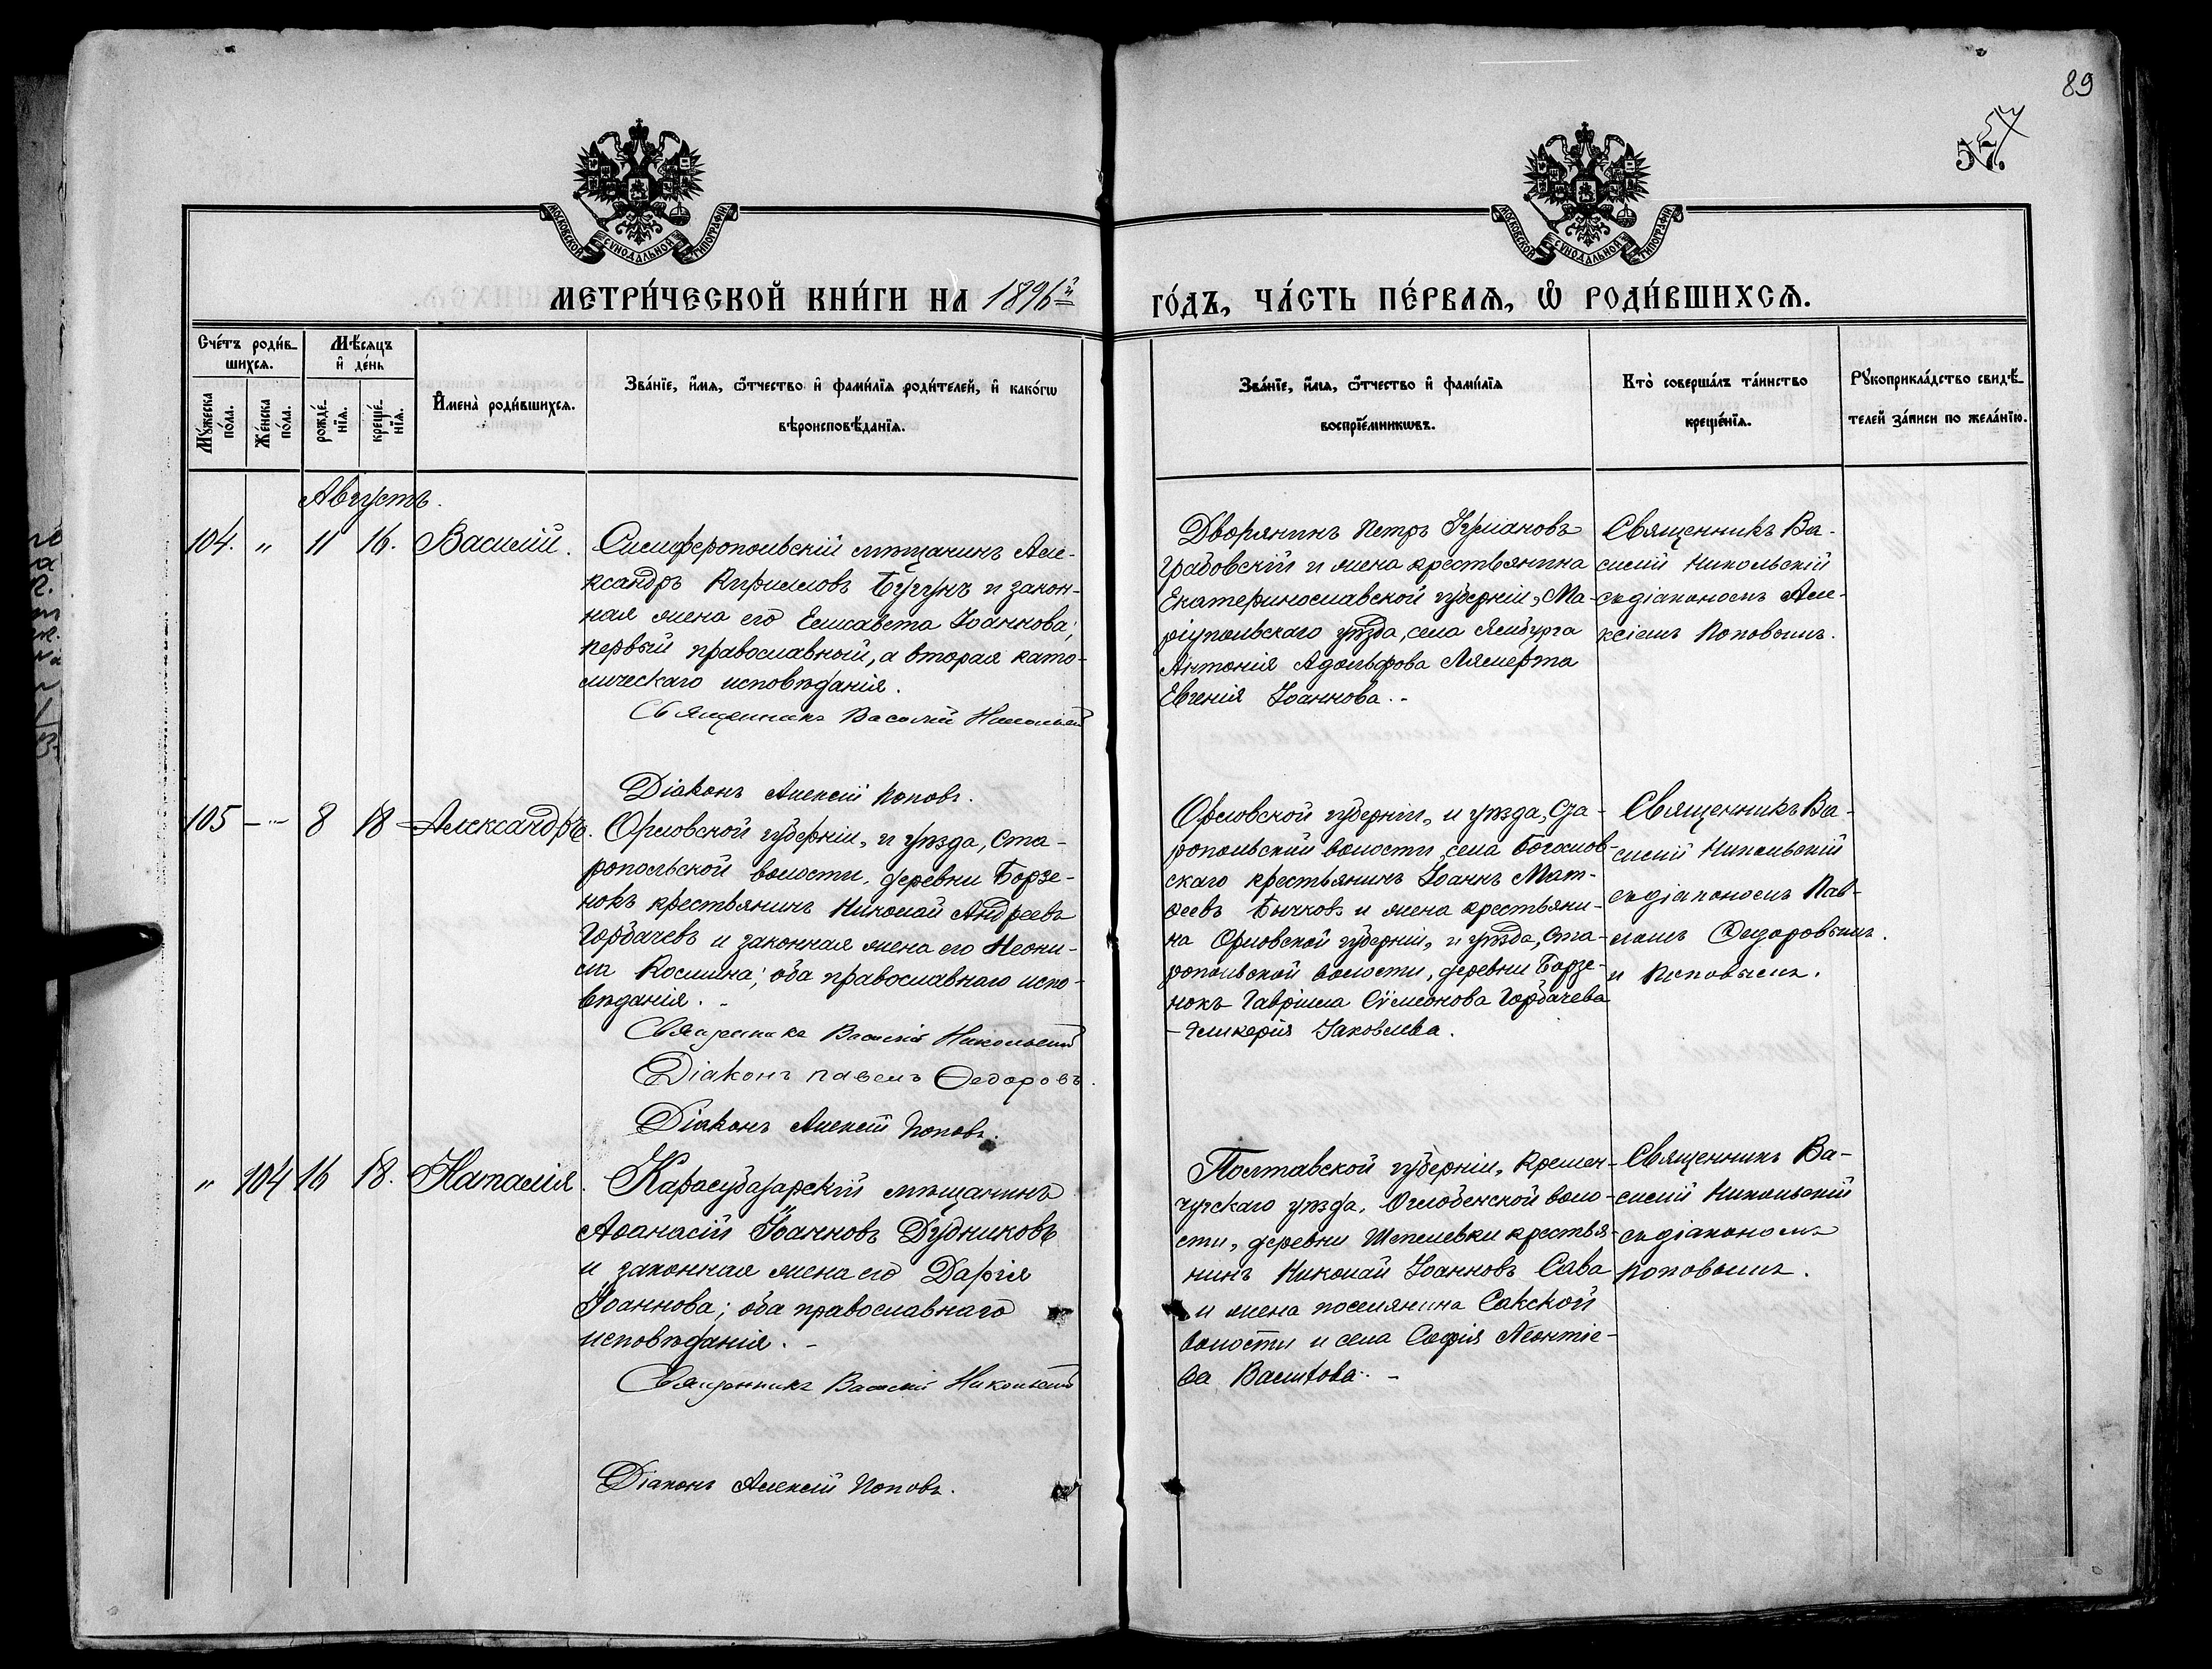 89
57
57.
МОСКОВСКОЙ СѴНОДАЛЬНОЙ ТИПОГРАФІИ
МОСКОВСКОЙ СѴНОДАЛЬНОЙ ТИПОГРАФІИ
МЕТРИ́ЧЕСКОЙ КНИ́ГИ НА 1896й
ГО́ДЪ, ЧА́СТЬ ПЕ́РВАѦ, Ѡ҆ РОДИ́ВШИХСѦ.
Сче́тъ роди́в-
шихсѧ.
Мꙋ́жеска
по́ла.
Же́нска
по́ла.
Мѣ́сѧцъ
и҆ де́нь
рожде́-
нїѧ.
креще́-
нїѧ.
И҆мена̀ роди́вшихсѧ.
Зва́нїе, и҆́мѧ, ѻ҆́тчество и҆ фами́лїѧ роди́телей, и҆ како́гѡ
вѣроисповѣ́данїѧ.
Зва́нїе, и҆́мѧ, ѻ҆́тчество и҆ фами́лїѧ
воспрїе́мникѡвъ.
Кто̀ соверша́лъ та́инство
креще́нїѧ.
Рꙋкоприкла́дство свидѣ́-
телей за́писи по жела́нїю.
Августъ.
104. „ 11 16. Василій.
Симферопольскій мѣщанинъ Але-
ксандръ Кирилловъ Бугунъ и закон-
ная жена его Елисавета Іоаннова;
первый православный, а вторая като-
лическаго исповѣданія.
Священникъ Василій Никольскій
Діаконъ Алексій Поповъ.
Дворянинъ Петръ
Грабовскій и жена крестьянина
Екатеринославской губерніи, Ма-
ріупольскаго уѣзда, села Ямбурга
Антонія Адольфова
Евгенія Іоаннова. -
Священникъ Ва-
силій Никольскій
съ діакономъ Але-
ксіемъ Поповымъ.
105 - „ - 8 18 Александръ.
Орловской губерніи, и уѣзда, Ста-
ропольской волости, деревни Борзе-
нокъ крестьянинъ Николай Андреевъ
Горбачевъ и законная жена его Неони-
ла Космина; оба православнаго испо-
вѣданія. -
Священникъ Василій Никольскій
Діаконъ Павелъ Ѳедоровъ.
Діаконъ Алексій Поповъ.
Орловской губерніи, и уѣзда, Ста-
ропольской волости, села Богослов-
скаго крестьянинъ Іоаннъ Мат-
ѳеевъ Бычковъ и жена крестьяни-
на Орловской губерніи, и уѣзда, Ста-
ропольской волости, деревни Борзе-
нокъ Гавріила Сѵмеонова Горбачева
- Гликерія Іаковлева.
Священникъ Ва-
силій Никольскій
съ діакономъ Пав-
ломъ Ѳедоровымъ
и Поповымъ.
„ 104 16 18. Наталія.
Карасубазарскій мѣщанинъ
Аѳанасій Іоанновъ Дудниковъ
и законная жена его Дарія
Іоаннова; оба православнаго
исповѣданія. -
Священникъ Василій Никольскій
Діаконъ Алексій Поповъ.
Полтавской губерніи, Кремен-
чугскаго уѣзда, воло-
сти, деревни Шепелевки крестья-
нинъ Николай Іоанновъ Сава
и жена поселянина Сакской
волости и села Софія Леонтіе-
ва
Священникъ Ва-
силій Никольскій
съ діакономъ
Поповымъ.